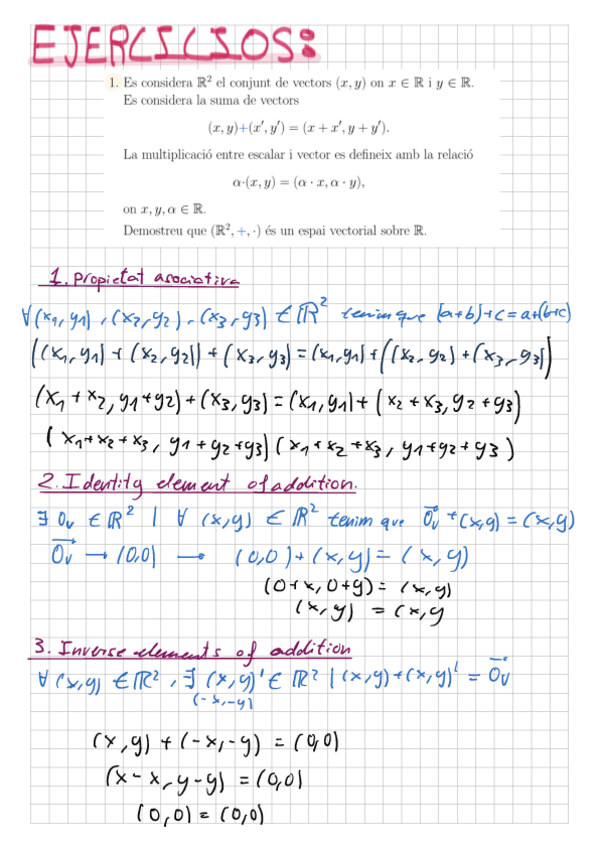 EJERCICIOS:
1. Es considera ℝ² el conjunt de vectors (x, y) on x ∈ ℝ i y ∈ ℝ.
Es considera la suma de vectors
(x, y)+(x′, y′) = (x + x′, y + y′).
La multiplicació entre escalar i vector es defineix amb la relació
α·(x, y) = (α · x, α · y),
on x, y, α ∈ ℝ.
Demostreu que (ℝ², +, ·) és un espai vectorial sobre ℝ.
1. Propietat asociativa
∀(x1, y1), (x2, y2), (x3, y3) ∈ ℝ² tenim que (a+b)+c = a+(b+c)
((x1, y1) + (x2, y2)) + (x3, y3) = (x1, y1) + ((x2, y2) + (x3, y3))
(x1 + x2, y1 + y2) + (x3, y3) = (x1, y1) + (x2 + x3, y2 + y3)
(x1 + x2 + x3, y1 + y2 + y3) (x1 + x2 + x3, y1 + y2 + y3)
2. Identity element of addition.
∃ 0v ∈ ℝ² | ∀ (x, y) ∈ ℝ² tenim que 0v + (x, y) = (x, y)
0v → (0,0) → (0,0) + (x, y) = (x, y)
(0+x, 0+y) = (x, y)
(x, y) = (x, y
3. Inverse elements of addition
∀ (x, y) ∈ ℝ², ∃ (x, y)' ∈ ℝ² | (x, y) + (x, y)' = 0v
(-x, -y)
(x, y) + (-x, -y) = (0,0)
(x - x, y - y) = (0,0)
(0,0) = (0,0)